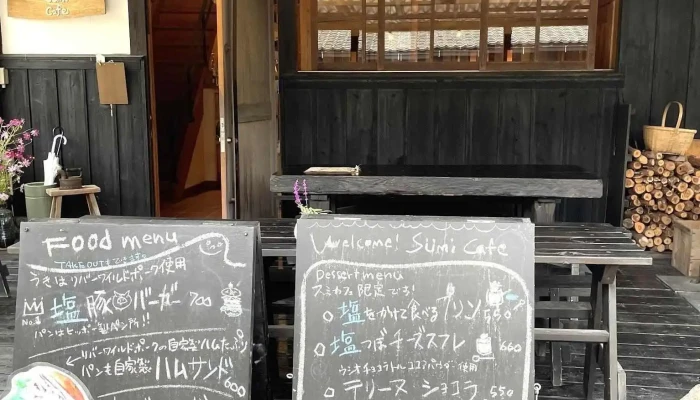 Cafe
Food menu
TAKE OUTもできます。
うきはリバーワイルドポーク使用
No.1
塩豚バーガー 700
パンはヒッポー製パン所!!
←リバーワイルドの自家製ハムたっぷり
パンも自家製 ハムサンド
600
Welcome! Sumi Cafe
Dessert menu
スミカフェ限定でる!
塩をかけて食べるプリン 550
塩つぼチーズスフレ 660
ココアパウダー使用
テリーヌ ショコラ 550